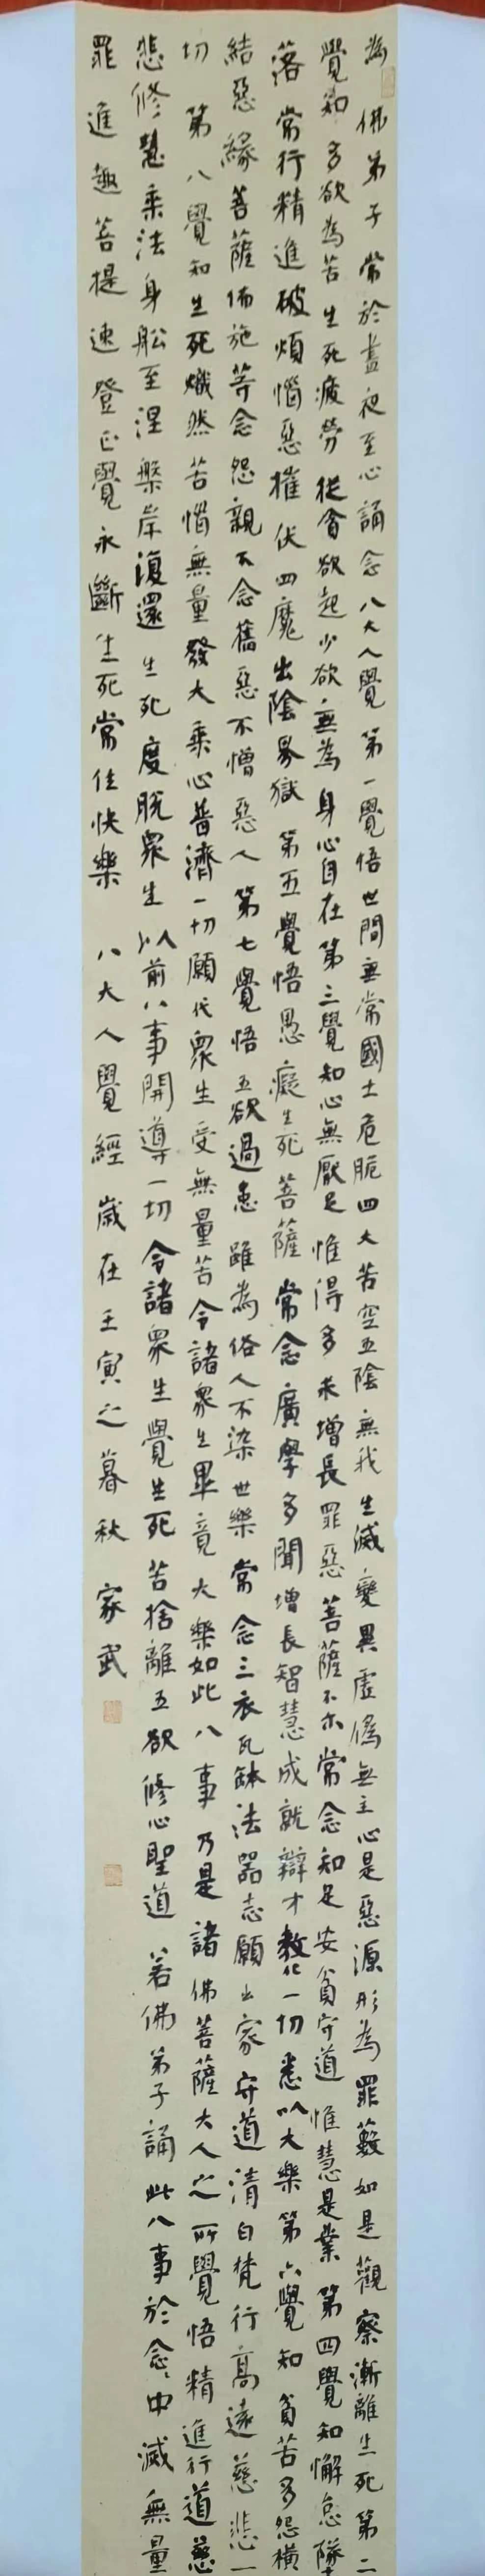 為佛弟子常於晝夜至心誦念八大人覺第一覺悟世間無常國土危脆四大苦空五陰無我生滅變異虛偽無主心是惡源形為罪藪如是觀察漸離生死第二
覺知多欲為苦生死疲勞從貪欲起少欲無為身心自在第三覺知心無厭足惟得多求增長罪惡菩薩不尔常念知足安貧守道惟慧是業第四覺知懈怠墜
落常行精進破煩惱惡摧伏四魔出陰界獄第五覺悟愚癡生死菩薩常念廣學多聞增長智慧成就辯才教化一切悉以大樂第六覺知貧苦多怨橫
結惡緣菩薩布施等念怨親不念舊惡不憎惡人第七覺悟五欲過患雖為俗人不染世樂常念三衣瓦鉢法器志願出家守道清白梵行高遠慈悲一
切第八覺知生死熾然苦惱無量發大乘心普濟一切願代眾生受無量苦令諸眾生畢竟大樂如此八事乃是諸佛菩薩大人之所覺悟精進行道慈
悲修慧乘法身船至涅槃岸復還生死度脫眾生以前八事開導一切令諸眾生覺生死苦捨離五欲修心聖道若佛弟子誦此八事於念念中滅無量
罪進趣菩提速登正覺永斷生死常住快樂八大人覺經歲在壬寅之暮秋家武